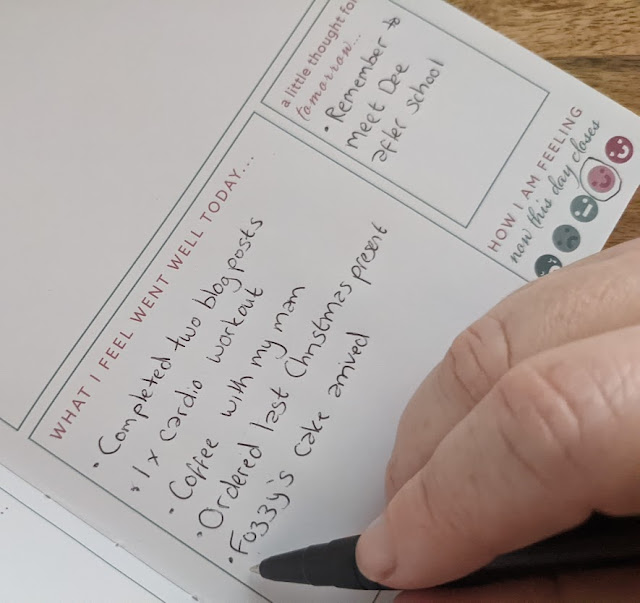 a little thought for
tomorrow...
• Remember to
meet Dee
after school
WHAT I FEEL WENT WELL TODAY...
• Completed two blog posts
• 1 x cardio workout
• Coffee with my man
• Ordered last Christmas present
• Fozzy's cake arrived
HOW I AM FEELING
now this day closes